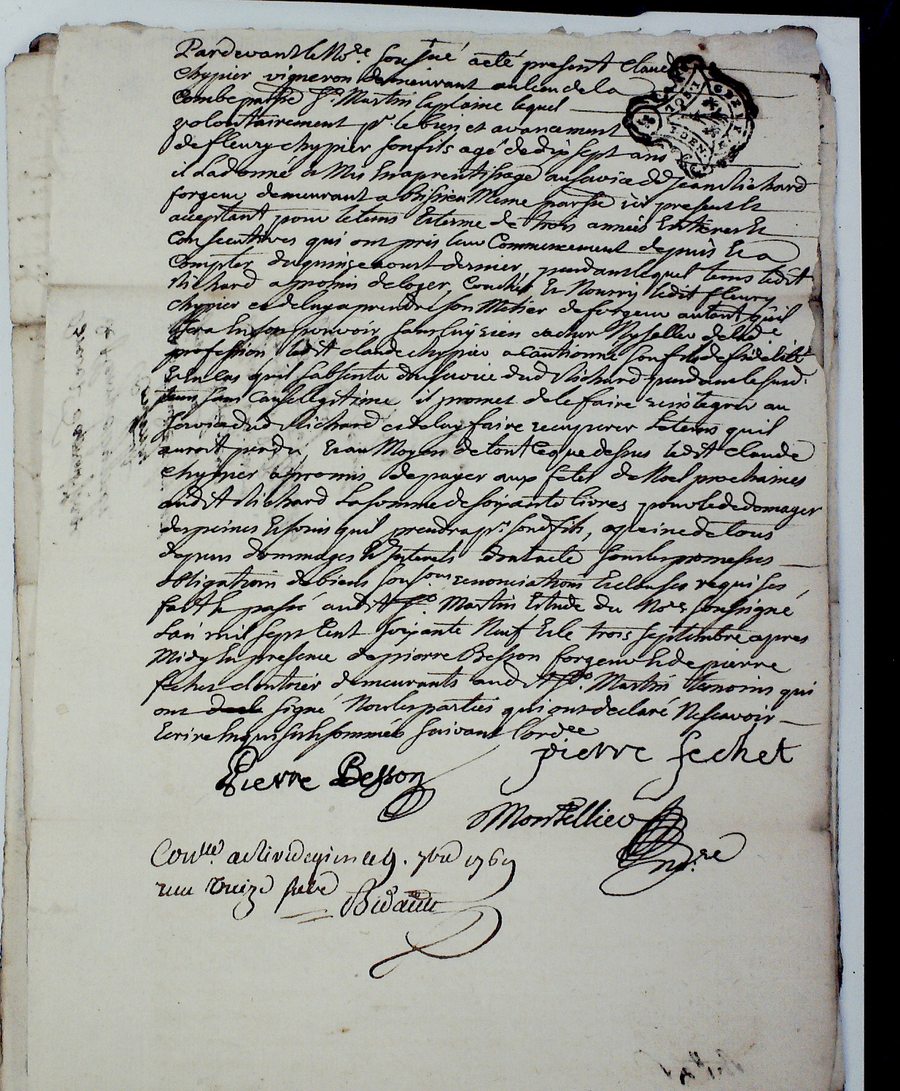 Pardevant le No.re soussigné acté present Claude
Chypier vigneron demeurant au lieu de la
Combe parsse St. Martin laplaine lequel
volontairement pr. le bien et avancement
de fleury chypier son fils agé de dix sept ans
il La donné a Mis En aprentissage au service de Jean Richard
forgeur demeurant a Bissieu Meme parsse ici present Et
acceptant pour le tems Et terme de trois années Entieres Et
Consecutives qui ont pris leur Commencement depuis Et a
Compter du quinze aoust dernier, pendant lequel tems ledit
Richard a promis de loger, Coucher Et Nourrir ledit fleury
Chypier et de luy aprendre son Metier de forgeur autant qu'il
sera En son pouvoir sans luy rien cacher Ny seller de lade
profession ledit claude chypier a Cautionné son fils de fidelité
Et en Cas qu'il s'absenta du service dud Richard pendant le susd.
tems sans Cause legitime il promet de le faire reintegrer au
service dud Richard et de luy faire recuperer Le tems qu'il
auroit perdu, Et au Moyen de tout ce que dessus ledit Claude
Chypier a promis de payer aux fetes de Noel prochaines
audit Richard La somme de soixante livres pour le dedomager
des peines Et soins quil prendra pr. sondt fils, a peine de tous
depens dommages Et Interets Dont acte sous les promesses
obligations de biens sous renonciations Et clauses requises
fait & passé audit St. Martin Etude du Nore soussigné
L'an mil sept Cent soixante Neuf Et le trois septembre apres
Midy En presence de pierre Besson forgeur Et de pierre
fechet cloutier demeurants audit St. Martin temoins qui
ont signé Non les parties qui ont declaré Ne scavoir
Ecrire Enquis Et sommés suivant l'ordce
pierre fechet
Pierre Besson
Montellier
no.re
Conllé. a Rivedegier le 9. 7bre 1769
recu treize sols